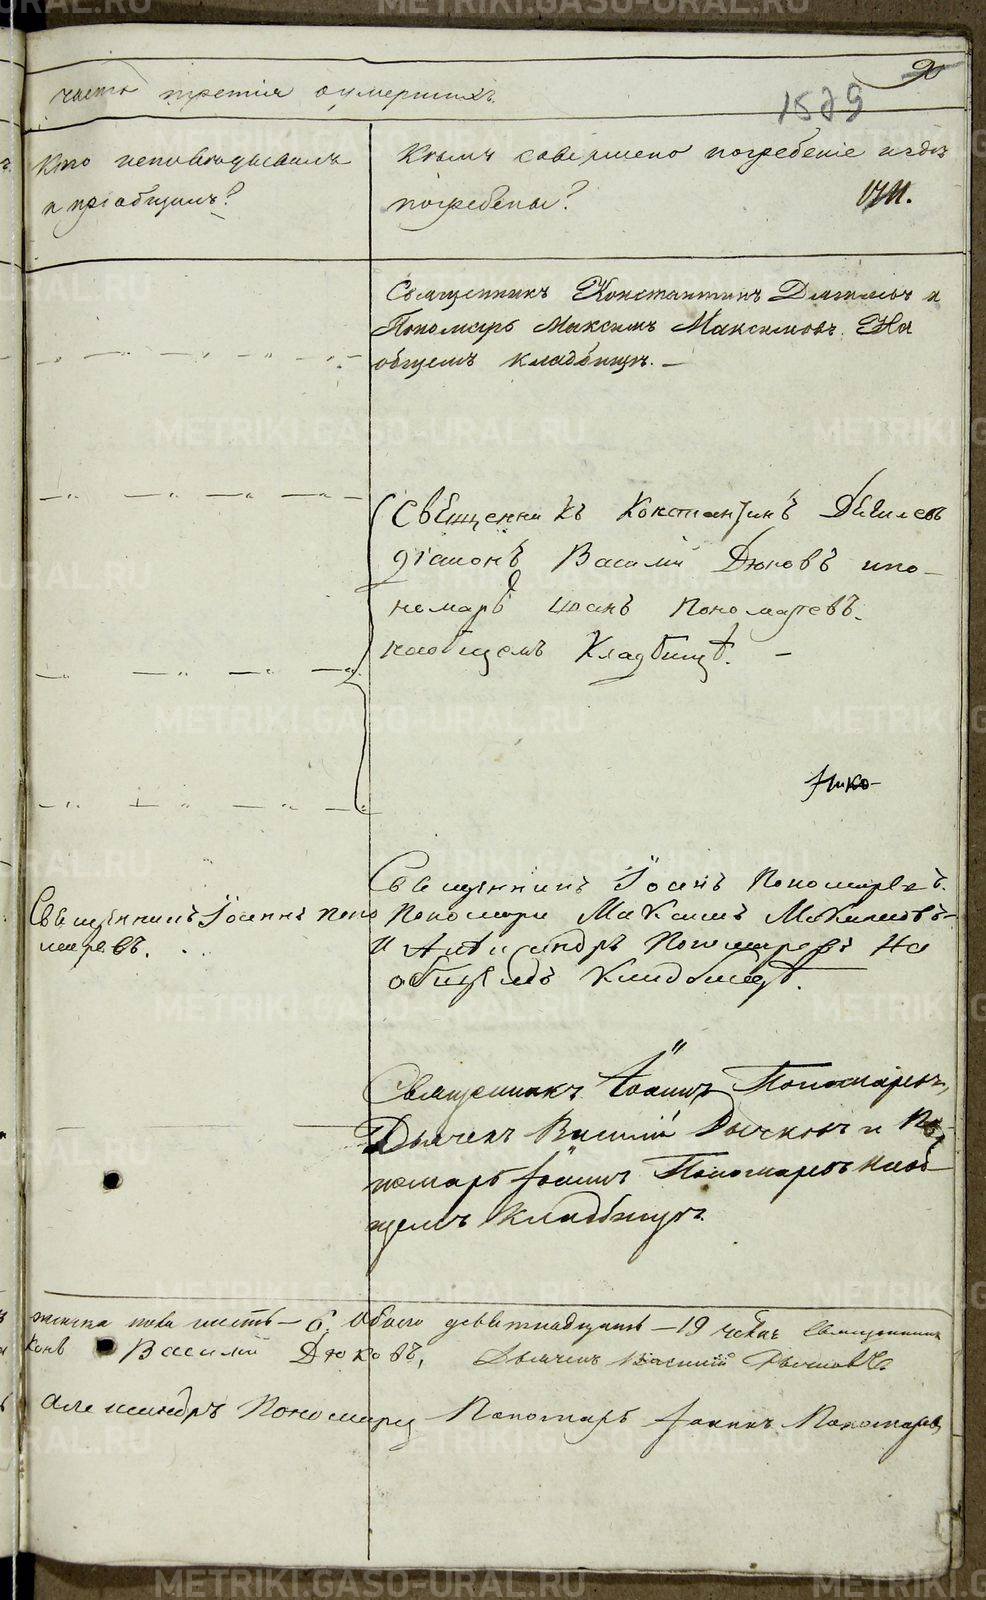 часть третія о умершихъ.
1879
Кто исповѣдывалъ
и пріобщалъ?
Кѣмъ совершено погребеніе и гдѣ
погребены?
Священникъ Константинъ и
Пономарь Максимъ Максимовъ. На
общемъ кладбищѣ. —
Священникъ Константинъ
діаконъ Василій Дюковъ и по-
номарь Иоанъ Пономаревъ.
на общемъ Кладбищѣ. —
Священникъ Іоанъ Пономаревъ.
Священникъ Іоаннъ Поно
маревъ.
Пономари Максимъ Максимовъ
и Александръ Пономаревъ На
общемъ Кладбищѣ.
Священникъ Іоаннъ Пономаревъ,
Дьячекъ Василій Дьячковъ и По-
номарь Іоаннъ Пономаревъ на об
щемъ Кладбищѣ.
женска пола шесть — 6, Обоего девятнадцать — 19 человѣк Священникъ
конъ Василій Дюковъ, Дьячекъ Василій Дьячковъ.
Александръ Пономарев Пономарь Іоаннъ Пономаревъ
METRIKI.GASO-URAL.RU